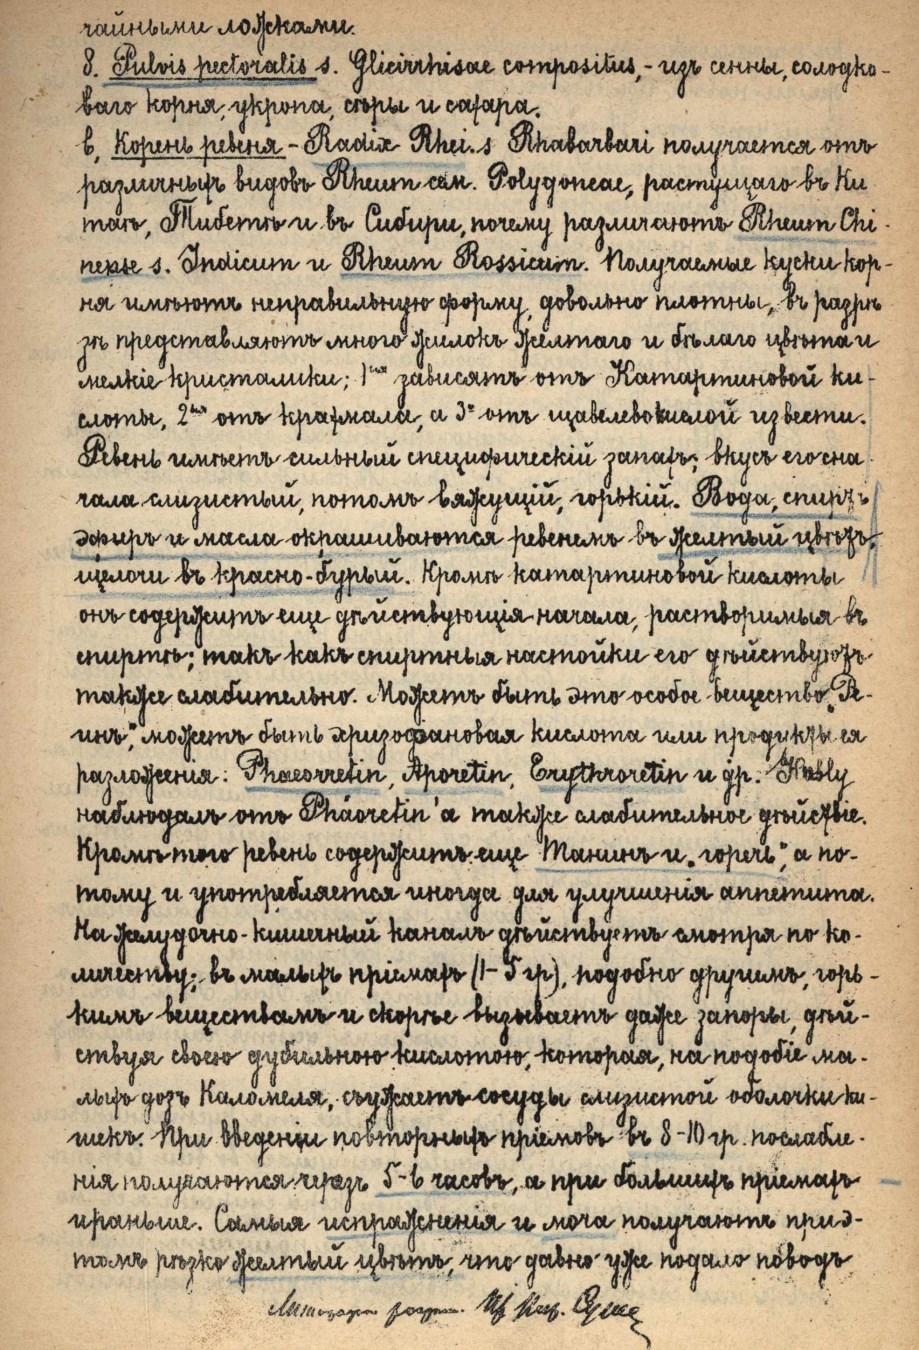 чайными ложками.
8. Pulvis pectoralis s. Glicirrhisae compositus, - изъ сенны, солодко-
ваго корня, укропа, сѣры и сахара.
в, Корень ревеня - Radix Rhei. s Rhabarbari получается отъ
различныхъ видовъ Rheum сем. Polygoneae, растущаго въ Ки
таѣ, Тибетѣ и въ Сибири, почему различаютъ Rheum Chi-
nense s. Indicum и Rheum Rossicum. Получаемые куски кор-
ня имѣютъ неправильную форму, довольно плотны, въ разрѣ
зѣ представляютъ много жилокъ желтаго и бѣлаго цвѣта и
мелкіе кристалики; 1ыя зависятъ отъ Катартиновой ки-
слоты, 2ыя отъ крахмала, а 3е отъ щавелевокислой извести.
Ревень имѣетъ сильный специфическій запахъ; вкусъ его сна
чала слизистый, потомъ вяжущій, горькій. Вода, спиртъ
эфиръ и масла окрашиваются ревенемъ въ желтый цвѣтъ,
щелочи въ красно-бурый. Кромѣ катартиновой кислоты
онъ содержитъ еще дѣйствующія начала, растворимыя въ
спиртѣ; такъ какъ спиртныя настойки его дѣйствуютъ
также слабительно. Можетъ быть это особое вещество „Ре-
инъ", можетъ быть хризофановая кислота или продукты ея
разложенія: Phaeorretin, Aporetin, Erythroretin и др.
наблюдалъ отъ Phäoretin'а также слабительное дѣйствіе.
Кромѣ того ревень содержитъ еще Танинъ и „горечь", а по-
тому и употребляется иногда для улучшенія аппетита.
На желудочно-кишечный каналъ дѣйствуетъ смотря по ко-
личеству; въ малыхъ пріемахъ (1-5 гр), подобно другимъ, горь-
кимъ веществамъ и скорѣе вызываетъ даже запоры, дѣй-
ствуя своею дубильною кислотою, которая, на подобіе ма-
лыхъ дозъ Каломеля, съужаетъ сосуды слизистой оболочки ки-
шекъ. При введеніи повторныхъ пріемовъ въ 8-10 гр. послабле-
нія получаются черезъ 5-6 часовъ, а при большихъ пріемахъ
и раньше. Самыя испражненія и моча получаютъ при э-
томъ рѣзко желтый цвѣтъ, что давно уже подало поводъ